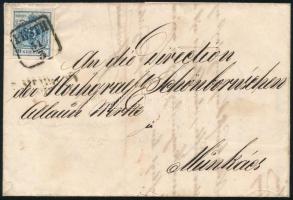 An die Direction
der Hochgraf Schönbornischen
Alaun Werke
Munkács